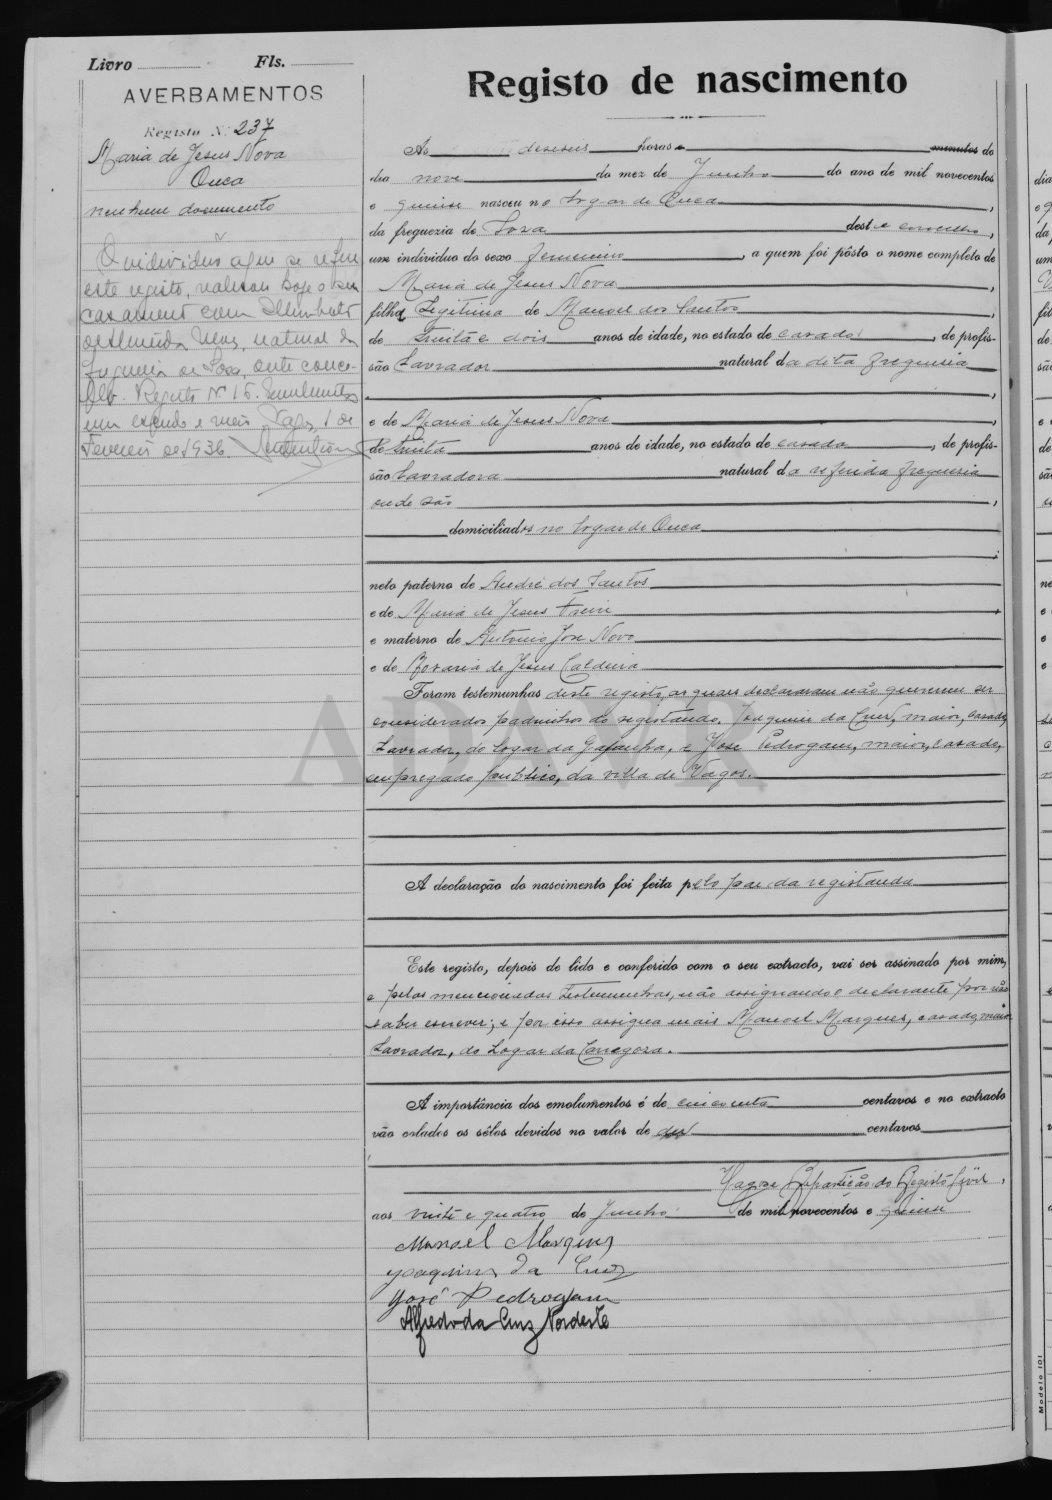 Livro Fls.
AVERBAMENTOS
Registo N.º 237
Maria de Jesus Nova
Ouca
nenhum documento
O individuo a que se refere
este registo, realisou hoje o seu
casamento com
de Almeida Neves, natural da
freguesia de Soza,
Registo Nº 16. Emolumentos
um escudo e meio Vagos, 1 de
Fevereiro de 1936
Registo de nascimento
Ás deseseis horas e minutos do
dia nove do mez de Junho do ano de mil novecentos
e quinse nasceu no logar de Ouca,
da freguezia de Sosa deste concelho,
um individuo do sexo femenino, a quem foi pôsto o nome completo de
Maria de Jesus Nova,
filha Legitima de Manoel dos Santos,
de trinta e dois anos de idade, no estado de casado, de profis-
são Lavrador natural da dita freguesia
,
e de Maria de Jesus Nova,
de trinta anos de idade, no estado de casada, de profis-
são Lavradora natural da referida freguesia
onde são,
domiciliados no logar de Ouca
;
neto paterno de André dos Santos
e de Maria de Jesus Freire,
e materno de Antonio José Novo
e de Rosaria de Jesus Caldeira
Foram testemunhas deste registo, as quaes declararam não querem ser
considerados padrinhos do registando. Joaquim da Cruz, maior, casado,
Lavrador, do logar da Gafanha, e José Pedrogam, maior, casado,
empregado publico, da villa de Vagos.
A declaração do nascimento foi feita pelo pae da registanda
Este registo, depois de lido e conferido com o seu extracto, vai ser assinado por mim,
e pelas mencionadas testemunhas, não assignando o declarante por não
saber escrever; e por isso assigna mais Manoel Marques, casado, maior
Lavrador, do Logar da Carregosa.
A importância dos emolumentos é de cincoenta centavos e no extracto
vão colados os sêlos devidos no valor de dez centavos
Vagos e Repartição do Registo Civil,
aos vinte e quatro de Junho de mil novecentos e quinse
Manoel Marques
Joaquim da Cruz
José Pedrogam
Alfredo da Cruz Nordeste
ADAVR
Modelo 101